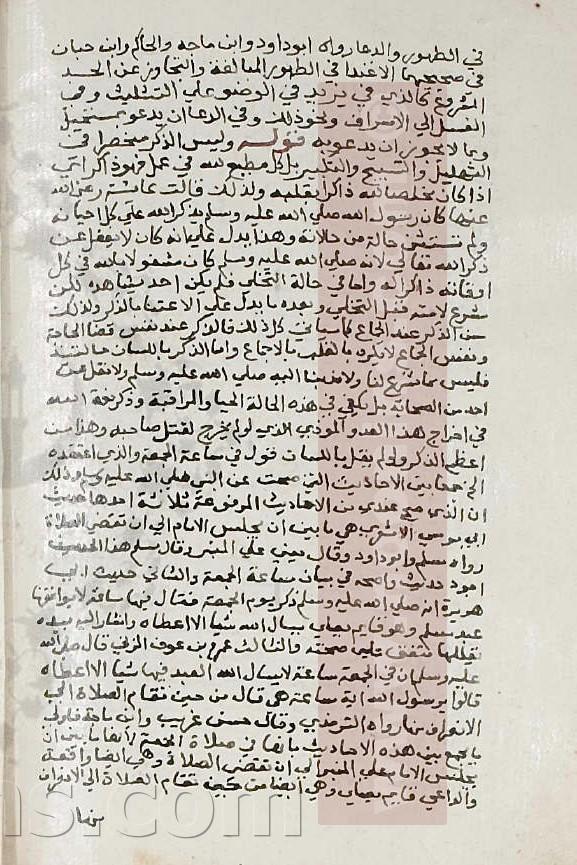 في الطهور والدعا رواه ابو داود وابن ماجه والحاكم وابن حبان
في صحيحهما الاعتدا في الطهور المبالغة والتجاوز عن الحد
المشروع كالذي في يزيد في الوضو علي التثليث وفي
الغسل الي الاسراف ونحو ذلك وفي الدعا ان يدعو بمستحيل
وبما لا يجوز ان يدعو به قوله وليس الذكر منحصرا في
التهليل والتسبيح والتكبير بل كل مطيع لله في عمل فهو ذاكر اي
اذا كان مخلصا لله ذاكرا بقلبه ولذلك قالت عائشة رضي الله
عنها كان رسول الله صلي الله عليه وسلم يذكر الله علي كل احيانه
ولم تستثن حالة من حالاته وهذا يدل علي انه كان لا يغفل عن
ذكر الله تعالي لانه صلي الله عليه وسلم كان مشغولا بالله في كل
اوقاته ذاكرا له واما في حالة التخلي فلم يكن احد يشاهده لكن
شرع لامته قبل التخلي وبعده ما يدل علي الاعتنا بالذكر وكذلك
سن الذكر عند الجماع كما سياتي كل ذلك فالذكر عند نفس قضا الحاجة
ونفس الجماع لا يكره بالقلب بالاجماع واما الذكر باللسان حالتئذ
فليس مما شرع لنا ولا ندبنا اليه صلي الله عليه وسلم ولا نقل عن
احد من الصحابة بل يكفي في هذه الحالة الحيا والمراقبة وذكر نعمة الله
في اخراج هذا العدو الموذي الذي لو لم يخرج لقتل صاحبه وهذا من
اعظم الذكر ولو لم يقل باللسان قوله في ساعة الجمعة والذي اعتقده
الخ جمعا بين الاحاديث التي صحت عن النبي صلي الله عليه وسلم وذلك
ان الذي صح عندي من الاحاديث المرفوعة ثلاثة احدها حديث
ابي موسي الاشعري هي ما بين ان يجلس الامام الي ان تقضي الصلاة
رواه مسلم وابو داود وقال يعني علي المنبر وقال مسلم هذا الحديث
اجود حديث واصحه في بيان ساعة الجمعة والثاني حديث ابي
هريرة انه صلي الله عليه وسلم ذكر يوم الجمعة فقال فيها ساعة لا يوافقها
عبد مسلم وهو قايم يصلي يسال الله شيا الا اعطاه واشار اليه بيده
يقللها متفق علي صحته والثالث عمرو بن عوف المزني قال صلي الله
عليه وسلم ان في الجمعة ساعة لا يسال الله العبد فيها شيا الا اعطاه
قالوا يرسول الله اية ساعة هي قال من حين تقام الصلاة الي
الانصراف منها رواه الترمذي وقال حسن غريب وابن ماجة
بالجمع بين هذه الاحاديث بانها في صلاة الجمعة لانها ما بين ان
يجلس الامام علي المنبر الي ان تقضي الصلاة وهي ايضا واقعة
والداعي قايم يصلي وهي ايضا من حين تقام الصلاة الي الانصراف
منها
ns.com